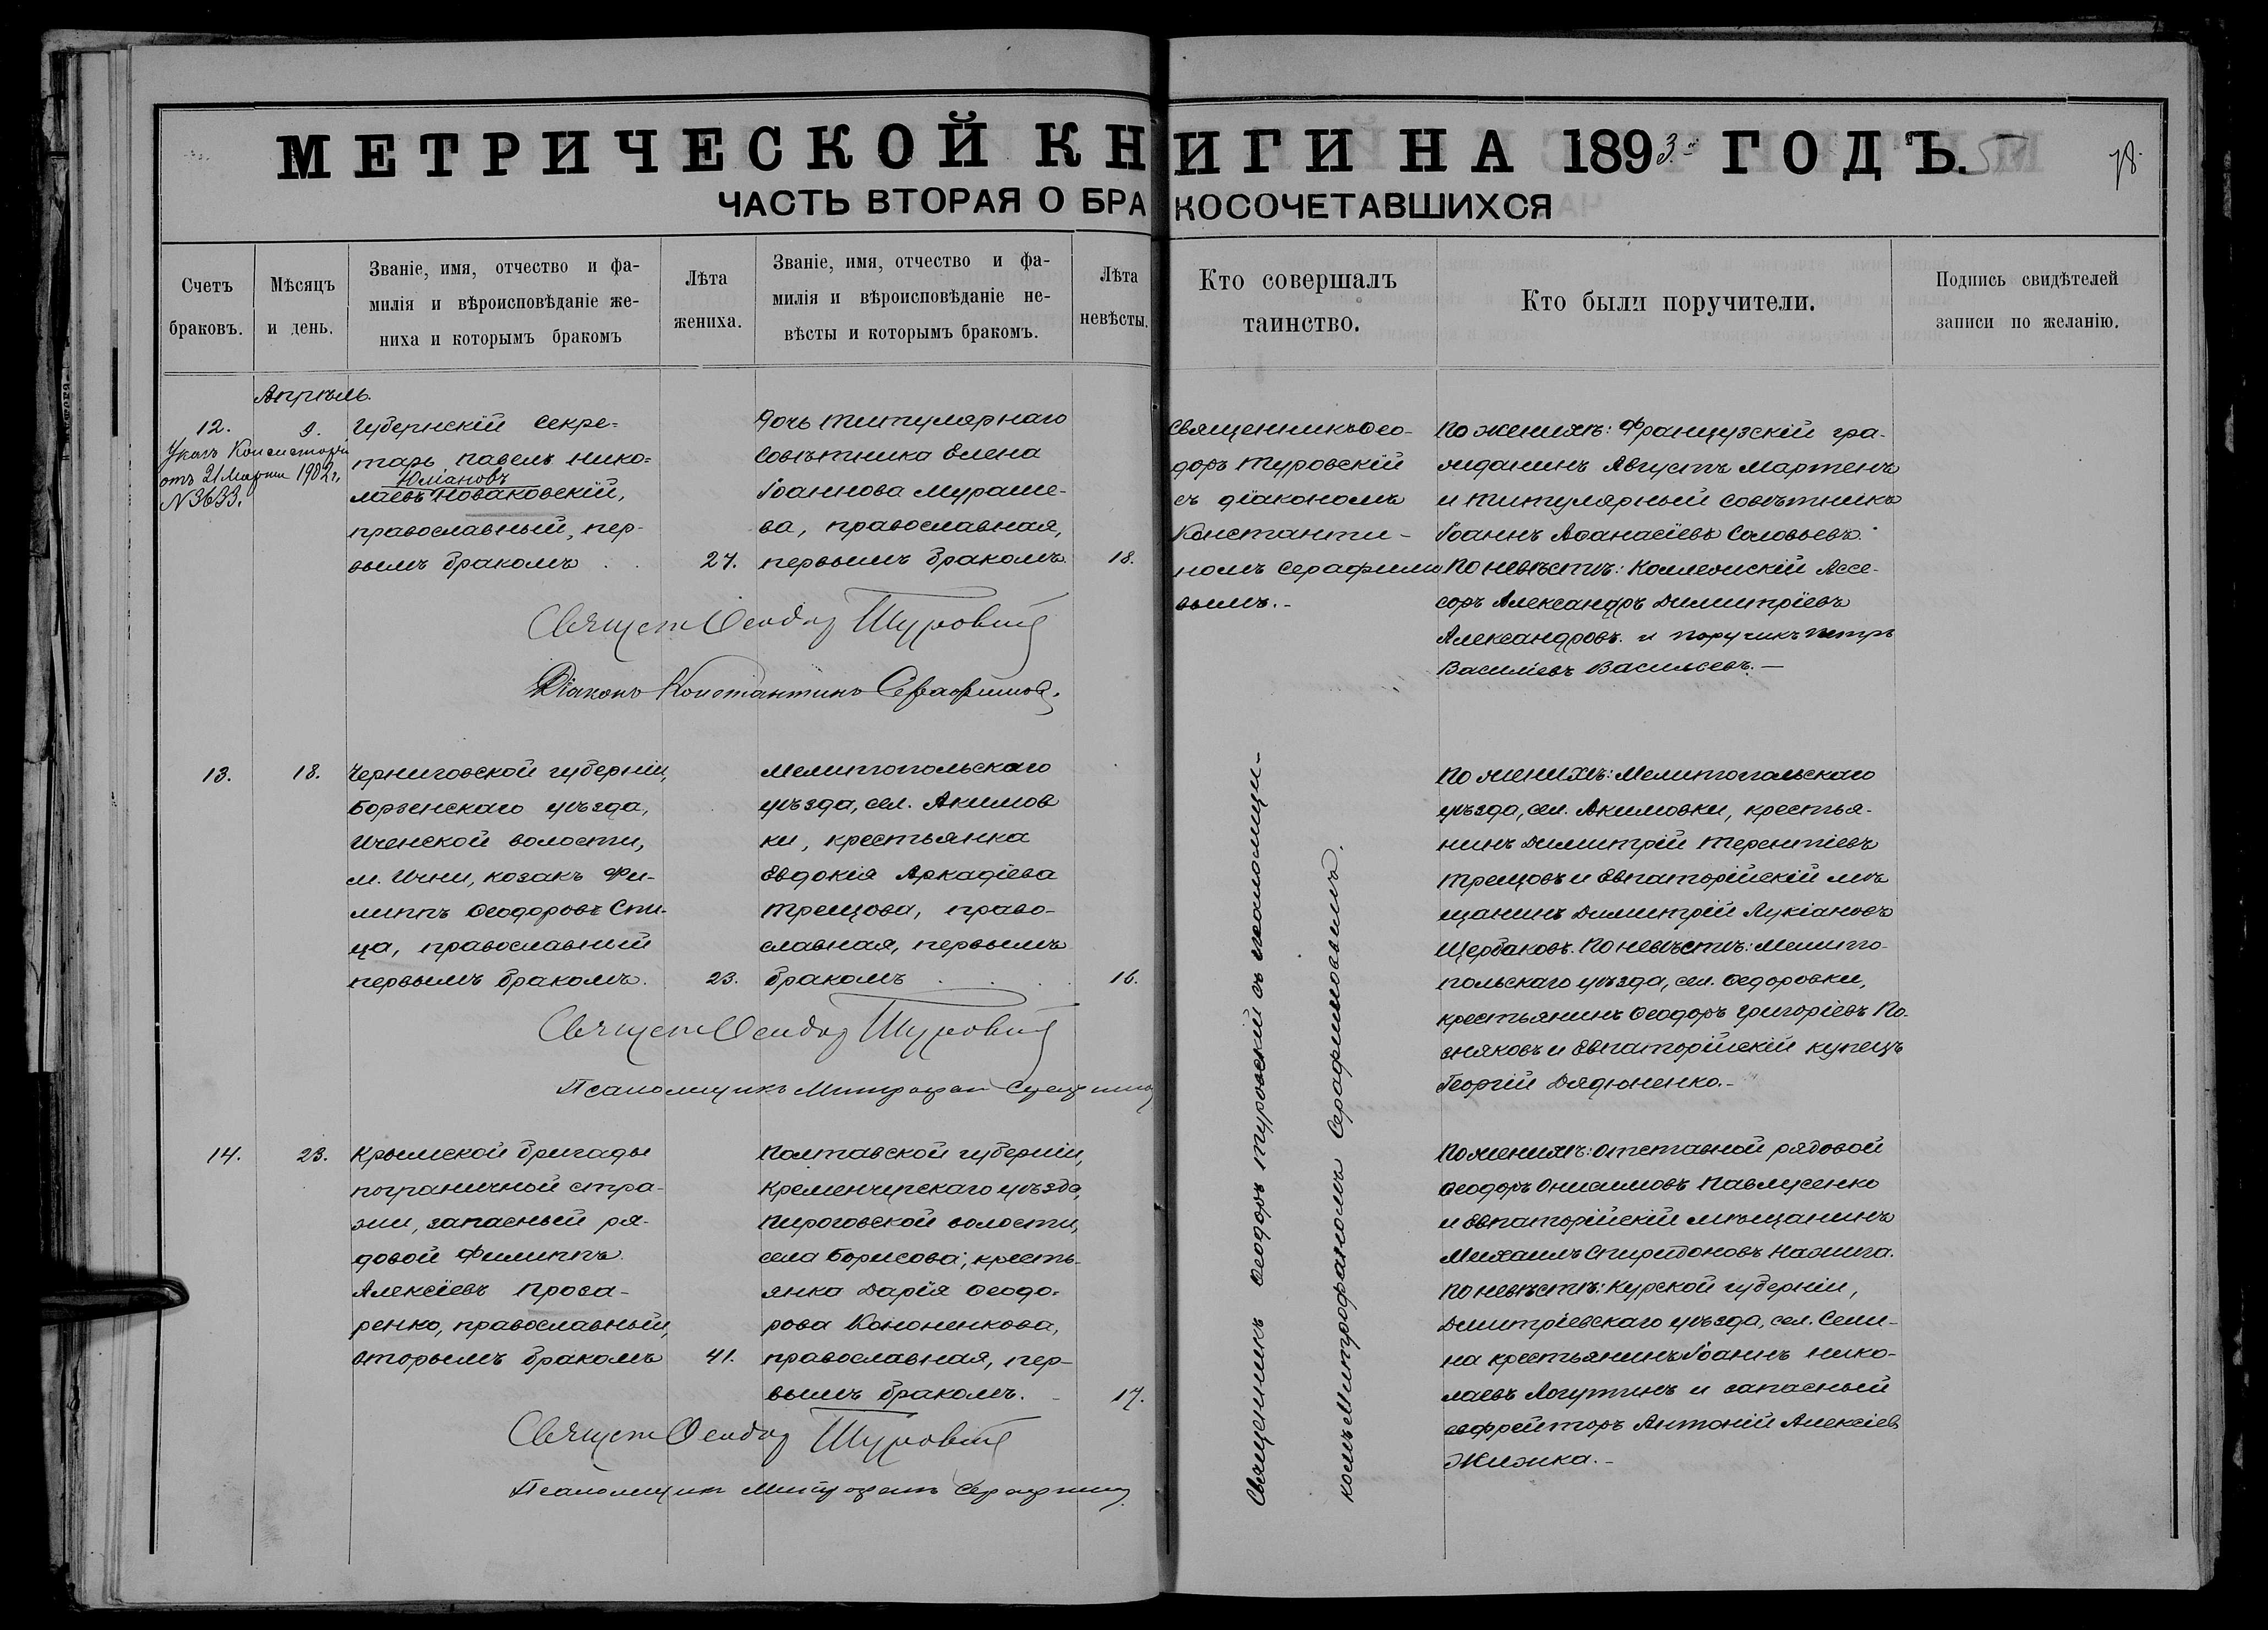 МЕТРИЧЕСКОЙ КНИГИ НА 1893й ГОДЪ.
78.
ЧАСТЬ ВТОРАЯ О БРАКОСОЧЕТАВШИХСЯ
Счетъ
браковъ.
Мѣсяцъ
и день.
Званіе, имя, отчество и фа-
милія и вѣроисповѣданіе же-
ниха и которымъ бракомъ
Лѣта
жениха.
Званіе, имя, отчество и фа-
милія и вѣроисповѣданіе не-
вѣсты и которымъ бракомъ.
Лѣта
невѣсты.
Кто совершалъ
таинство.
Кто были поручители.
Подпись свидѣтелей
записи по желанію.
Апрѣль.
12.
Указъ Консисторіи
отъ 21 Марта 1902 г.
№ 3633.
9.
Губернскій Секре=
тарь Павелъ Нико=
Юліановъ
лаевъ Новаковскій,
православный, пер-
вымъ бракомъ
27.
Дочь Титулярнаго
Совѣтника Елена
Іоаннова Мураше-
ва, православная,
первымъ бракомъ.
18.
Священникъ Ѳео-
доръ Туровскій
съ діакономъ
Константи-
номъ Серафимо
вымъ.-
По женихѣ: Французскій гра-
жданинъ Августъ Мартенъ
и Титулярный Совѣтникъ
Іоаннъ Аѳанасіевъ Соловьевъ.
По невѣстѣ: Коллежскій Ассе-
соръ Александръ Димитріевъ
Александровъ и поручикъ Петръ
Василіевъ Васильевъ.-
Священ Ѳеодор Туровскій
Діаконъ Константинъ Серафимовъ.
13.
18.
Черниговской губерніи,
Борзенскаго уѣзда,
Иченской волости,
м. Ични, козакъ Фи-
липпъ Ѳеодоровъ Спи-
ца, православный
первымъ бракомъ.
23.
Мелитопольскаго
уѣзда, сел. Акимов
ки, крестьянка
Евдокія Аркадіева
Трещова, право-
славная, первымъ
бракомъ
16.
По женихѣ: Мелитопольскаго
уѣзда, сел. Акимовки, крестья-
нинъ Димитрій Терентіевъ
Трещовъ и Евпаторійскій мѣ
щанинъ Димитрій Лукіановъ
Щербаковъ. По невѣстѣ: Мелито-
польскаго уѣзда, сел. Ѳедоровки,
крестьянинъ Ѳеодоръ Григоріевъ По-
сняковъ и Евпаторійскій купецъ
Георгій Дядюненко.-
Священ Ѳеодор Туровскій
Псаломщикъ Митрофан Серафимов
Священникъ Ѳеодоръ Туровскій съ псаломщи-
комъ Митрофаномъ Серафимовымъ.
14.
23.
Крымской бригады
пограничной стра-
жи, запасный ря-
довой Филиппъ
Алексіевъ Проза-
ренко, православный,
вторымъ бракомъ
41.
Полтавской губерніи,
Кременчугскаго уѣзда,
Пироговской волости,
села Борисова, кресть-
янка Дарія Ѳеодо-
рова Кононенкова,
православная, пер-
вымъ бракомъ.
17.
По женихѣ: отставной рядовой
Ѳеодоръ Онисимовъ Павлусенко
и Евпаторійскій мѣщанинъ
Михаилъ Спиридоновъ Калига.
По невѣстѣ: Курской губерніи,
Димитріевскаго уѣзда, сел. Сени-
на крестьянинъ Іоаннъ Нико-
лаевъ Логутинъ и запасный
еефрейторъ Антоній Алексіев
Жижка.-
Священ Ѳеодор Туровскій
Псаломщик Митрофанъ Серафимов